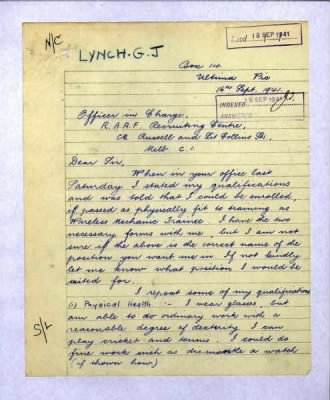 N/C
LYNCH. G. J
Recd 18 SEP 1941
Box 14
Ultima Vic
16th Sept. 1941.
INDEXED 19 SEP 1941
ANSWERED
Officer in Charge,
R.A.A.F. Recruiting Centre,
C/r Russell and Lit Collins Sts,
Melb C.1.
Dear Sir,
When in your office last
Saturday I stated my qualifications
and was told that I could be enrolled,
if passed as physically fit to training as
Wireless Mechanic Trainee. I have the two
necessary forms with me, but I am not
sure if the above is the correct name of the
position you want me in. If not kindly
let me know what position I would be
suited for.
I repeat some of my qualifications
(1) Physical Health :- I wear glasses, but
am able to do ordinary work with a
reasonable degree of dexterity. I can
play cricket and tennis. I could do
fine work such as dismantle a watch
(if shown how)
S/L